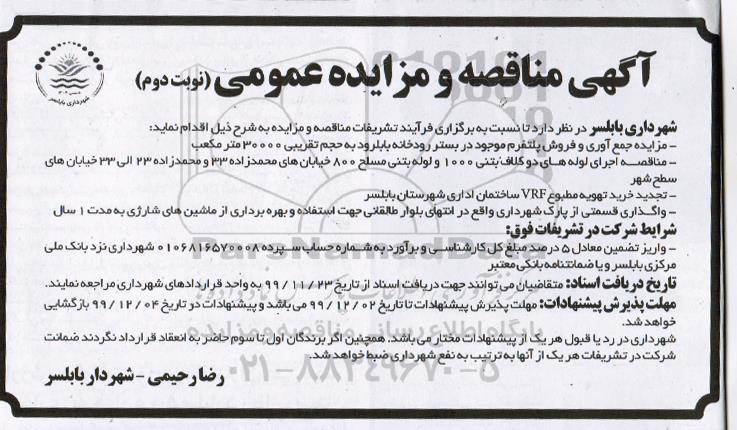 آگهی مناقصه و مزایده عمومی (نوبت دوم)
شهرداری بابلسر
شهرداری بابلسر در نظر دارد تا نسبت به برگزاری فرآیند تشریفات مناقصه و مزایده به شرح ذیل اقدام نماید:
- مزایده جمع آوری و فروش پلتفرم موجود در بستر رودخانه بابلرود به حجم تقریبی ۳۰۰۰۰ متر مکعب
- مناقصـــه اجرای لوله هــای دو کلاف بتنی ۱۰۰۰ و لوله بتنی مسلح ۸۰۰ خیابان های محمدزاده ۳۳ و محمدزاده ۲۳ الی ۳۳ خیابان های
سطح شهر
- تجدید خرید تهویه مطبوع VRF ساختمان اداری شهرستان بابلسر
- واگــذاری قسمتی از پارک شهرداری واقع در انتهای بلوار طالقانی جهت استفاده و بهره برداری از ماشین های شارژی به مدت ۱ سال
شرایط شرکت در تشریفات فوق:
- واریز تضمین معادل ۵ درصد مبلغ کل کارشناسـی و برآورد به شـماره حساب سـپرده ۰۱۰۶۸۱۶۵۷۰۰۰۸ شهرداری نزد بانک ملی
مرکزی بابلسر و یا ضمانتنامه بانکی معتبر
تاریخ دریافت اسناد: متقاضیان می توانند جهت دریافت اسناد از تاریخ ۹۹/۱۱/۲۳ به واحد قراردادهای شهرداری مراجعه نمایند.
مهلت پذیرش پیشنهادات: مهلت پذیرش پیشنهادات تا تاریخ ۹۹/۱۲/۰۲ می باشد و پیشنهادات در تاریخ ۹۹/۱۲/۰۴ بازگشایی
خواهد شد.
شهرداری در رد یا قبول هر یک از پیشنهادات مختار می باشد. همچنین اگر برندگان اول تا سوم حاضر به انعقاد قرارداد نگردند ضمانت
شرکت در تشریفات هر یک از آنها به ترتیب به نفع شهرداری ضبط خواهد شد.
رضا رحیمی - شهردار بابلسر
پایگاه اطلاع رسانی مناقصه و مزایده
۰۲۱-۸۸۳۴۹۶۷۰-۵